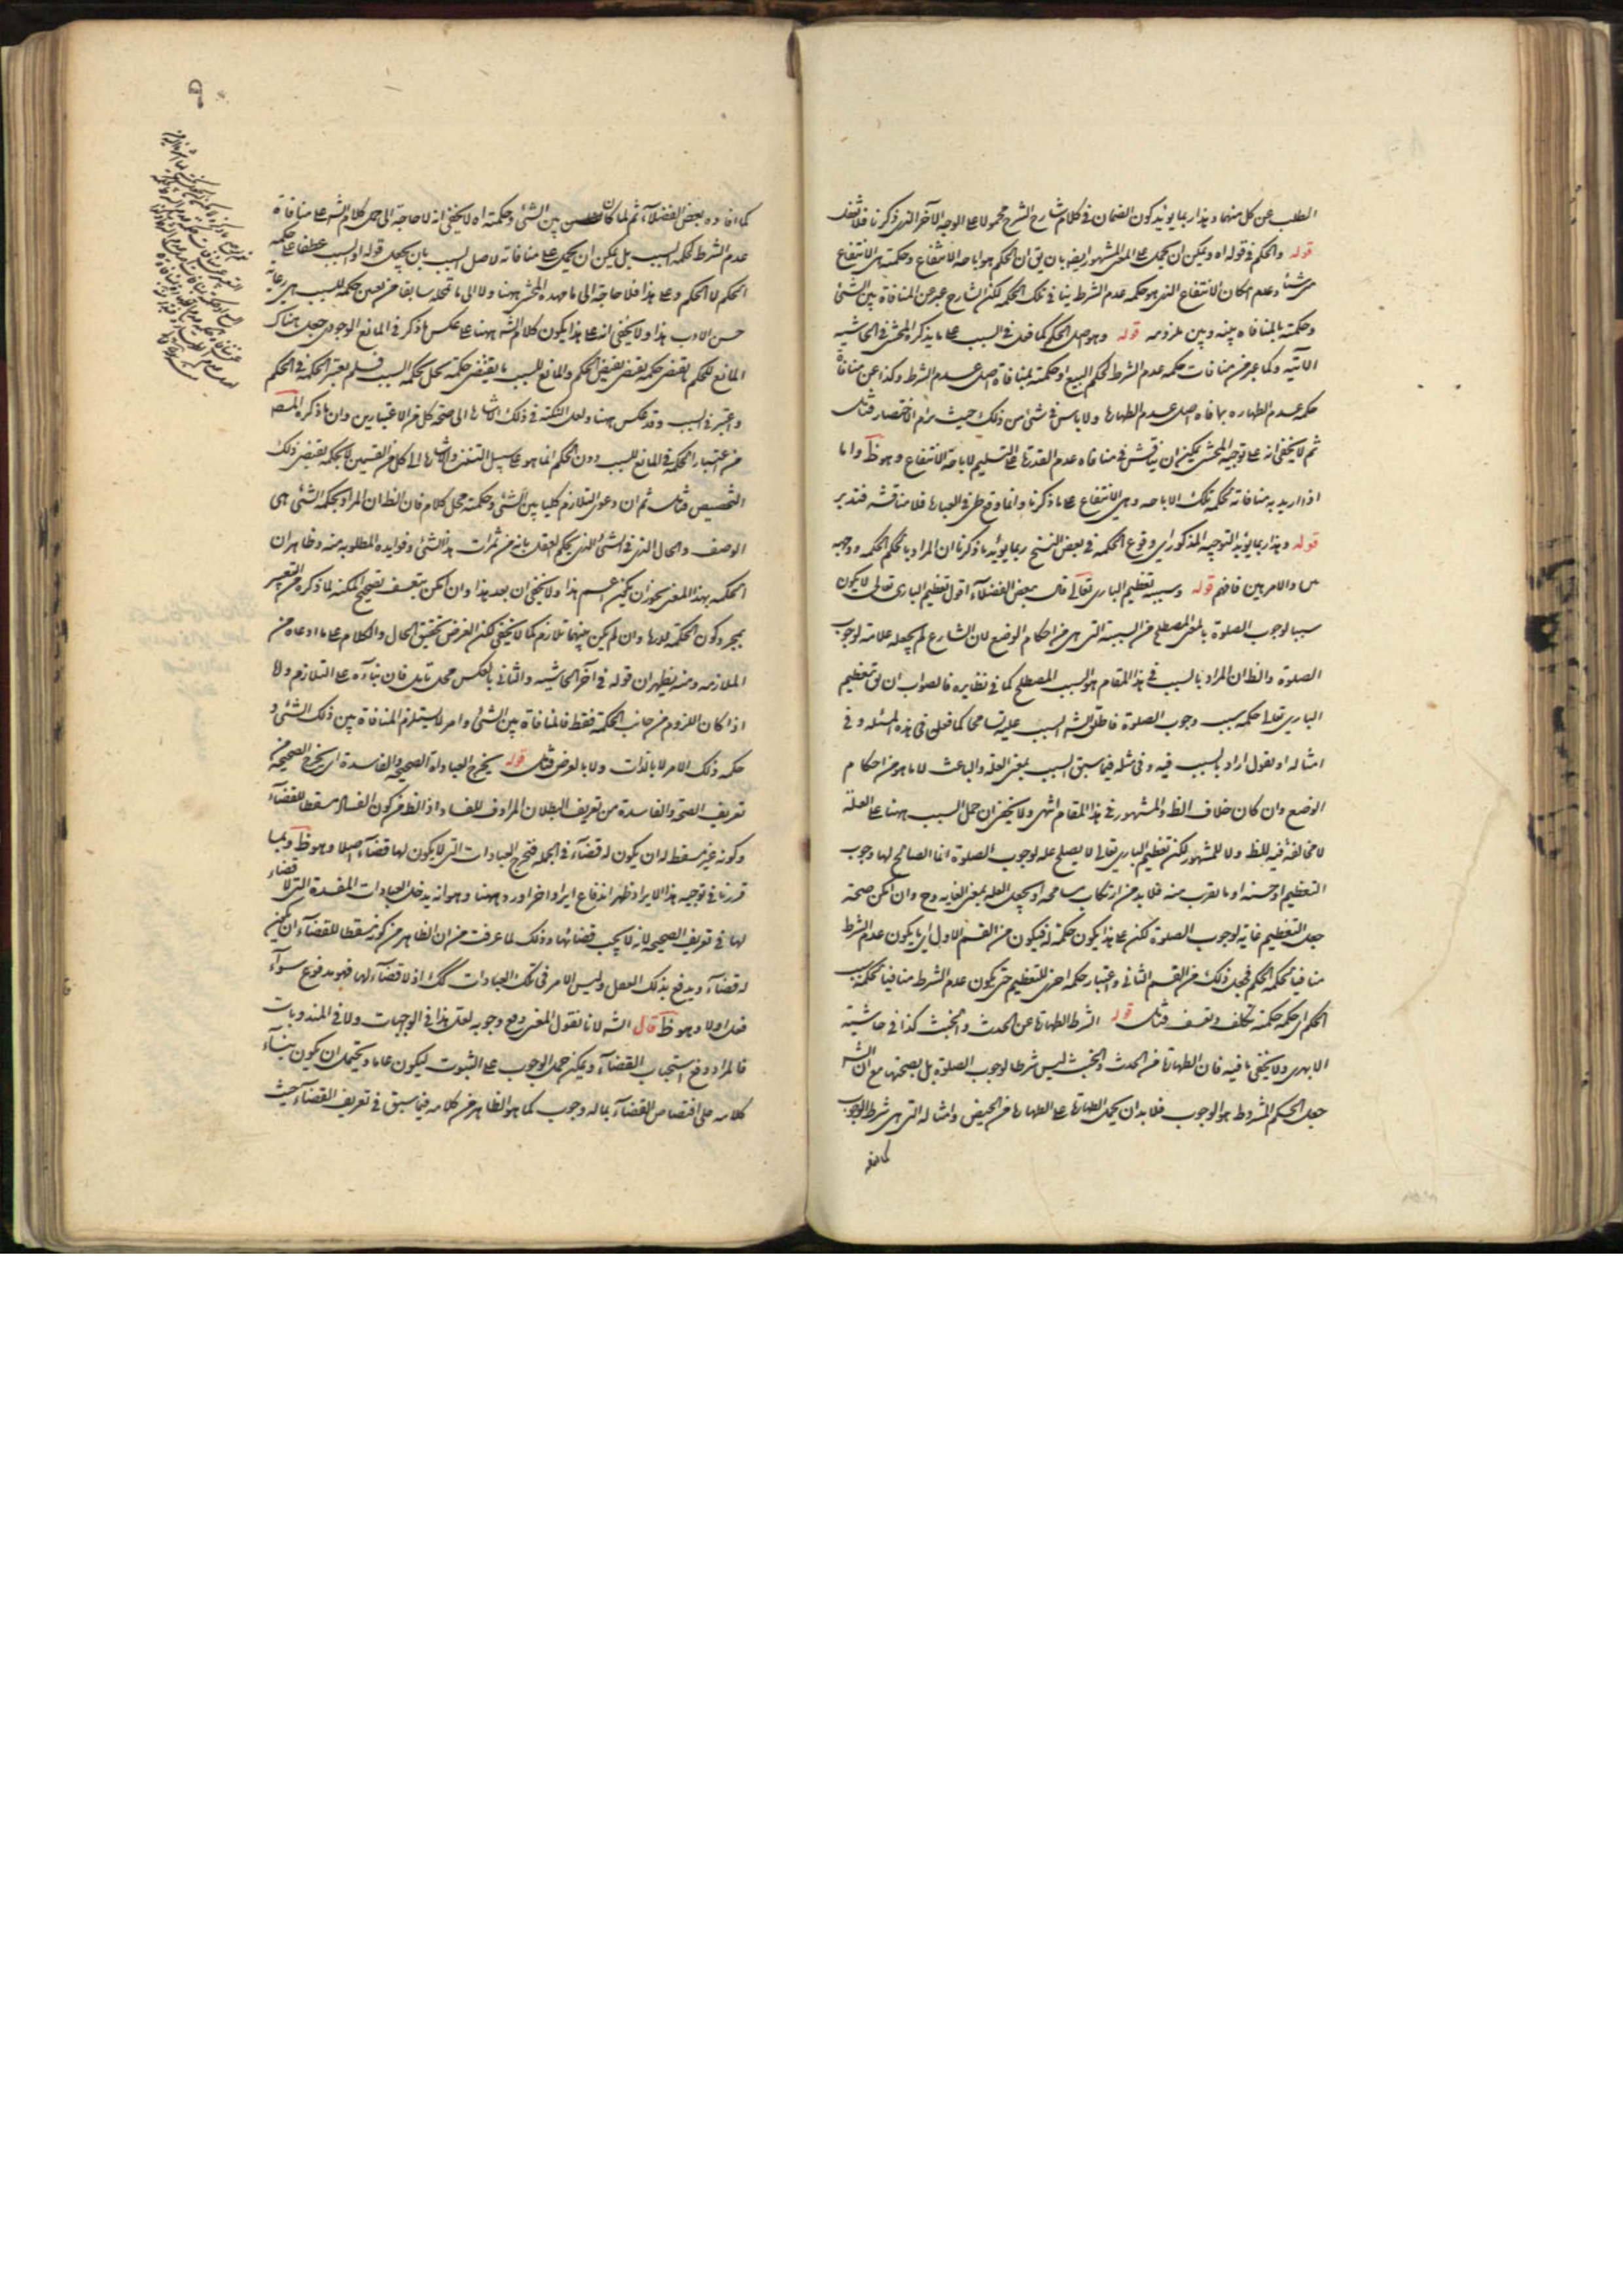 الطلب عن كل منهما وهذا ربما يؤيد كون الضمان في كلام شارح الشرح محمولا على الوجه الآخر الذي ذكرنا فلا تغفل
قوله والحكم في قوله اه ويمكن ان يحمل على المعنى المشهور ايضا بان يق ان الحكم هو اباحة الانتفاع وحكمته هي الانتفاع
وعدم امكان الانتفاع الذي هو حكمة عدم الشرط ينافي تلك الحكمة لكن الشارح عبر عن المنافاة بين الشئ
وحكمته بالمنافاه بينه وبين ملزومه قوله وهو اصل الحكم كما فعل في السبب على ما يذكره المحشى في الحاشيه
الآتيه وكما عبر عن منافات حكمه عدم الشرط لحكم البيع او حكمته بمنافاة اصل عدم الشرط وكذا عن منافاة
حكمه عدم الطهاره بمنافاه اصل عدم الطهارة ولا باس في شئ من ذلك حيث يرام الاختصار فتامل
ثم لا يخفى انه على توجيه المحشى يمكن ان يناقش في منافاه عدم القدرة على التسليم لاباحة الانتفاع وهو ظ واما
اذا اريد به منافاته لحكمة تلك الاباحه وهي الانتفاع على ما ذكرنا وانما وقع في العبارة فلا مناقشه فتدبر
قوله وهذا ربما يؤيد التوجيه المذكور اي وقوع الحكمه في بعض النسخ ربما يؤيد ما ذكرنا ان المراد بالحكم الحكمه ووجهه
والامر هين فافهم قوله وسببه تعظيم الباري تعالى قال بعض الفضلاء اقول تعظيم الباري تعالى لا يكون
سببا لوجوب الصلوة بالمعنى المصطلح من السببية التي هي من احكام الوضع لان الشارع لم يجعله علامة لوجوب
الصلوة والظ ان المراد بالسبب في هذا المقام هو السبب المصطلح كما في نظايره فالصواب ان يق تعظيم
الباري تعالى حكمه سبب وجوب الصلوة فاطلق الش السبب عليه تسامحا كما فعل في هذه المسئله وفي
امثاله او نقول اراد بالسبب فيه وفي مثله فيما سبق السبب بمعنى العلة والباعث لا ما هو من احكام
الوضع وان كان خلاف الظ والمشهور في هذا المقام انتهى ولا يخفى ان حمل السبب ههنا على العلة
لا مخالفة فيه للظ ولا للمشهور لكن تعظيم الباري تعالى لا يصلح علة لوجوب الصلوة انما الصالح لها وجوب
التعظيم او حسنه او ما يقرب منه فلا بد من ارتكاب مسامحه او يجعل العله بمعنى الغايه وح وان امكن صحة
جعل التعظيم غاية لوجوب الصلوة لكن على هذا يكون حكمة له فيكون من القسم الاول اي ما يكون عدم الشرط
منافيا لحكمة الحكم فجعل ذلك من القسم الثاني واعتبار حكمه اخرى للتعظيم حتى يكون عدم الشرط منافيا لحكمة سبب
الحكم اي حكمه حكمته تكلف وتعسف فتامل قوله الشرط الطهارة عن الحدث والخبث كذا في حاشية
الابهري ولا يخفى ما فيه فان الطهارة من الحدث والخبث ليس شرطا لوجوب الصلوة بل بصحتها مع ان الش
جعل الحكم المشروط هو الوجوب فلا بد ان يحمل الطهارة على الطهارة من الحيض وامثاله التي هي شرط الوجوب
كما افاده
كما افاده بعض الفضلاء ثم لما كان بين الشئ وحكمته اه لا يخفى انه لا حاجة الى حمل كلام الش على منافاة
عدم الشرط لحكمه السبب بل يمكن ان يحمل على منافاته لاصل السبب بان يجعل قوله او السبب عطفا على حكمه
الحكم لا الحكم وعلى هذا فلا حاجة الى ما مهده المحشى ههنا ولا الى ما تمحله سابقا من تعيين حكمه للسبب هي رعاية
حسن الادب هذا ولا يخفى انه على هذا يكون كلام الش ههنا على عكس ما ذكر في المانع الوجودي جعل هناك
المانع للحكم ما يقتضي حكمة تقتضي نقيض الحكم والمانع للسبب ما يقتضي حكمته تخل بحكمه السبب فلم يعتبر الحكمه في الحكم
واعتبر في السبب وقد عكس ههنا ولعل النكتة في ذلك اشارة الى صحة كل من الاعتبارين وان ما ذكره المص
من اعتبار الحكمة في المانع للسبب دون الحكم انما هو على سبيل التفنن واشارة الى كل من القسمين لا لحكمه تقتضي ذلك
التخصيص فتامل ثم ان دعوى التلازم كليا بين الشئ وحكمته محل كلام فان الظ ان المراد بحكمه الشئ هي
الوصف والحال الذي في الشئ الذي يحكم العقل بانه من ثمرات هذا الشئ وفوايده المطلوبه منه وظاهر ان
الحكمه بهذا المعنى يجوز ان يكون اعم هذا ولا يخفى ان بعد هذا وان امكن بتعسف تصحيح النكتة لما ذكره من التعبير
بمجرد كون الحكمة لازمة وان لم يكن بينهما تلازم كما لا يخفى لكن الغرض تحقيق الحال والكلام على ما ادعاه من
الملازمه ومنه يظهر ان قوله في آخر الحاشيه والثاني بالعكس محل تامل فان بناءه على التلازم والا
اذا كان اللزوم من جانب الحكمه فقط فالمنافاة بين الشئ وامر لا يستلزم المنافاة بين ذلك الشئ و
حكمه ذلك الامر لا بالذات ولا بالعرض فتامل قوله يخرج العباداة الصحيحه والفاسدة اي يخرج الصحيحه من
تعريف الصحة والفاسدة من تعريف البطلان المرادف للفساد اذ الظ من كون الفعل مسقطا للقضاء
وكونه غير مسقط له ان يكون له قضاء في الجمله فيخرج العبادات التي لا يكون لها قضاء اصلا وهو ظ وبما
قررنا في توجيه هذا الايراد ظهر اندفاع ايراد اخر اورد ههنا وهو انه يدخل العبادات المفسدة التي لا قضاء
لها في تعريف الصحيح لانه لا يجب قضائها وذلك لما عرفت من ان الظاهر من كونه مسقطا للقضاء ان يكون
له قضاء ويدفع بذلك الفعل وليس الامر في تلك العبادات كك اذ لا قضاء لها فهو مدفوع سواء
فعل اولا وهو ظ قال الش لانا نقول المعنى رفع وجوبه لعل هذا في الواجبات ولا في المندوبات
فالمراد رفع استحباب القضاء ويمكن حمل الوجوب على الثبوت ليكون عاما ويحتمل ان يكون بناء
كلامه على اختصاص القضاء بماله وجوب كما هو الظاهر من كلامه فيما سبق في تعريف القضاء حيث